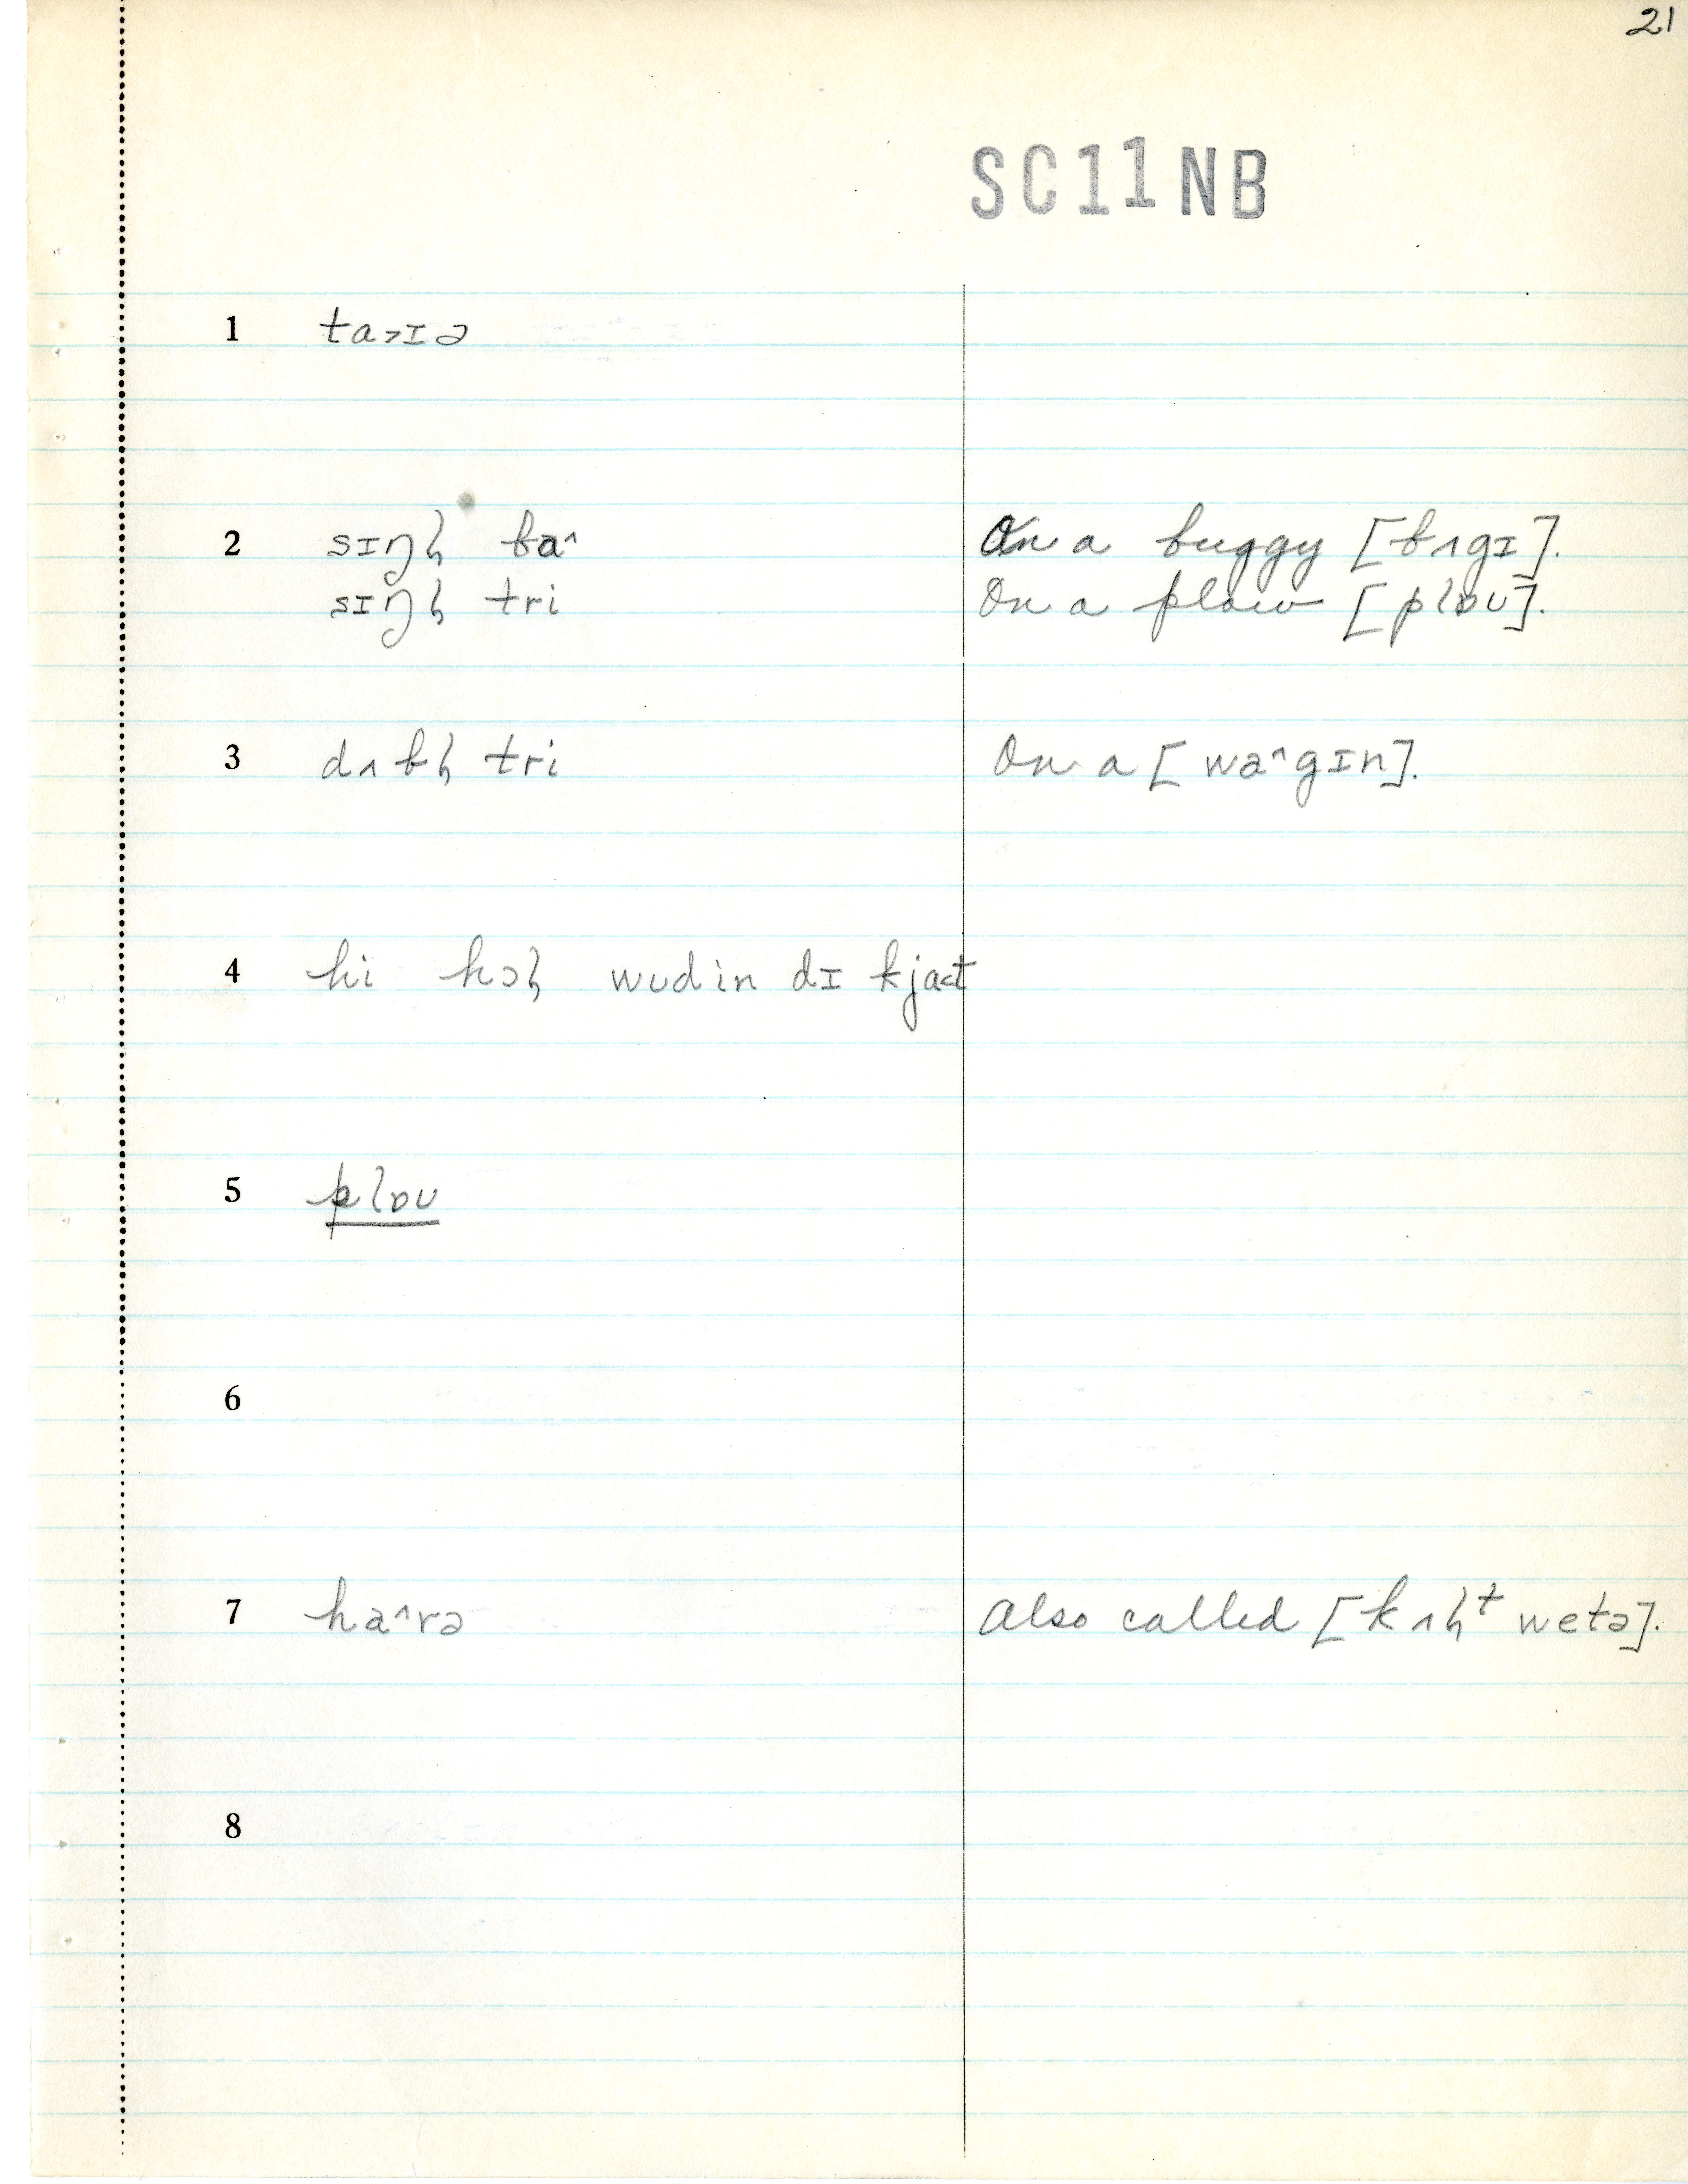 21
SC11NB
1 ta˃ɪə
2 sɪŋɫ ba^ On a buggy [bʌgɪ].
sɪŋɫ tri On a plow [plɒʊ].
3 dʌbɫ tri On a [wa^gɪn].
4 hi hɔɫ wʊdin dɪ kja˂t
5 plɒʊ
6
7 ha^rə Also called [kʌɫᵗ wetə].
8